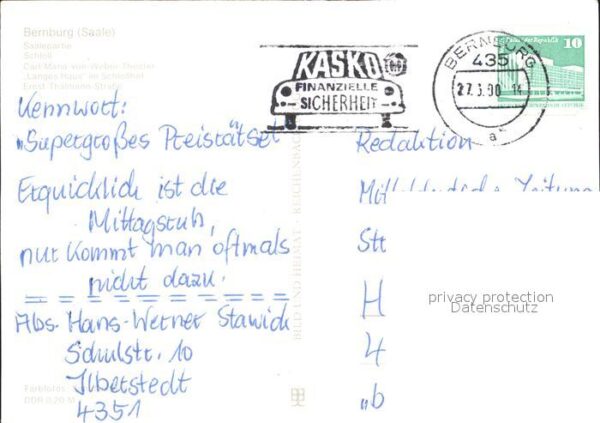 Bernburg (Saale)
Saalepartie
Schloß
Carl-Maria-von-Weber-Theater
„Langes Haus“ im Schloßhof
Ernst-Thälmann-Straße
KASKO
FINANZIELLE
SICHERHEIT
BERNBURG
435
27.3.90
a
10
Kennwort:
„Supergroßes Preisrätsel
Erquicklich ist die
Mittagstuh,
nur kommt man oftmals
nicht dazu.
Abs. Hans-Werner Stawick
Schulstr. 10
Ilberstedt
4351
BILD UND HEIMAT · REICHENBACH
Redaktion
Mitteldeutsche Zeitung
Stt
H
4
„b
privacy protection
Datenschutz
Farbfoto:
DDR 0,20 M